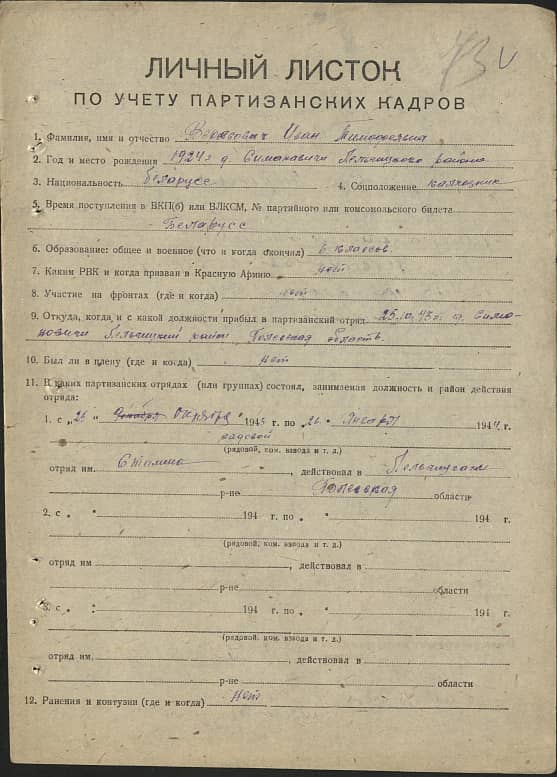 ЛИЧНЫЙ ЛИСТОК
ПО УЧЕТУ ПАРТИЗАНСКИХ КАДРОВ
1. Фамилия, имя и отчество Иван Тимофеевич
2. Год и место рождения 1924 г д. Симановичи Пельчицкого района
3. Национальность Беларусс 4. Соцположение колхозник
5. Время поступления в ВКП(б) или ВЛКСМ, № партийного или комсомольского билета
Беларусс
6. Образование: общее и военное (что и когда окончил) 6 классов
7. Каким РВК и когда призван в Красную Армию нет
8. Участие на фронтах (где и когда) нет
9. Откуда, когда и с какой должности прибыл в партизанский отряд 25.10.43 г. Сима-
новичи Пельчицкий район Полесская область.
10. Был ли в плену (где и когда) нет
11. В каких партизанских отрядах (или группах) состоял, занимаемая должность и район действия
отряда:
1. с „26 " Октября 1943 г. по „26 " Января 1944 г.
рядовой
(рядовой, ком. взвода и т. д.)
отряд им. Сталина, действовал в Пельчицком
р-не Полесская области
2. с „ " 194 г. по „ " 194 г.
(рядовой, ком. взвода и т. д.)
отряд им , действовал в
р-не области
3. с „ " 194 г. по „ " 194 г.
(рядовой, ком. взвода и т. д.)
отряд им. , действовал в
р-не области
12. Ранения и контузии (где и когда) нет